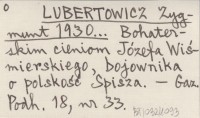 LUBERTOWICZ Zyg-
munt 1930... Bohater-
skim cieniom Józefa Wiś-
mierskiego, bojownika
o polskość Spisza. — Gaz.
Podh. 18, nr 33.